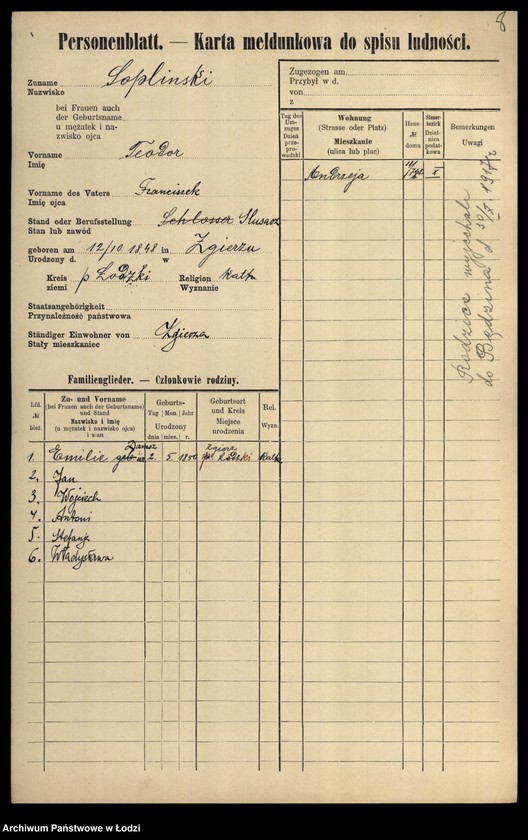 8
Personenblatt. — Karta meldunkowa do spisu ludności.
Zuname Soplinski
Nazwisko
bei Frauen auch
der Geburtsname
u mężatek i na-
zwisko ojca
Vorname Teodor
Imię
Vorname des Vaters Franciszek
Imię ojca
Stand oder Berufsstellung Schlosser Slusarz
Stan lub zawód
geboren am 12/10 1848 in Zgierzu
Urodzony d. w
Kreis p Łodzki Religion kath
ziemi Wyznanie
Staatsangehörigkeit
Przynależność państwowa
Ständiger Einwohner von Zgierza
Stały mieszkaniec
Zugezogen am
Przybył w d.
von
z
Tag des Um-zuges Dzień przepro-wadzki
Wohnung
(Strasse oder Platz)
Mieszkanie
(ulica lub plac)
Haus-
№
domu
Steuer-
bezirk
Dziel-
nica
podat-
kowa
Bemerkungen
Uwagi
Andrzeja X
Rodzice wyjechali
do Będzina d 30/X 1917 r
Familienglieder. — Członkowie rodziny.
Lfd.
№
bież.
Zu- und Vorname
(bei Frauen auch der Geburtsname
und Stand
Nazwisko i imię
(u mężatek i nazwisko ojca)
i stan
Geburts-
Tag Mon. Jahr
Urodzony
dnia mies. r.
Geburtsort
und Kreis
Miejsce
urodzenia
Rel.
Wyzn.
1. Emilie geb 2. 5 Zgierz kath
2. Jan
3. Wojciech
4. Antoni
5. Stefanja
6. Władysława
Archiwum Państwowe w Łodzi